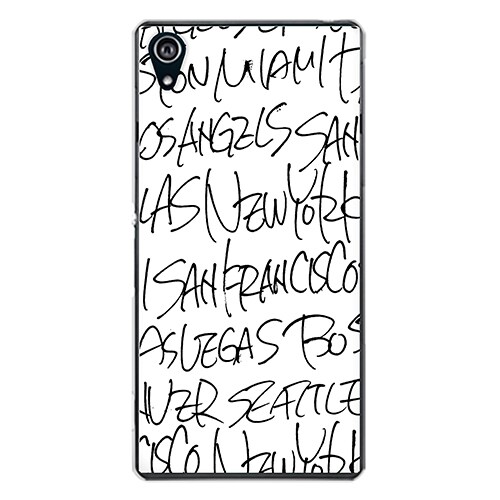 STON MIAMI H
OS ANGELS SAN
LAS NEW YORK
I SAN FRANCISCO
AS VEGAS BOS
UVER SEATTLE
CISCO NEW YORK